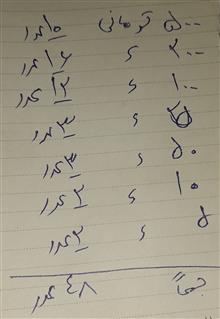 ۵۰۰ تومانی ۱۰ عدد
۲۰۰ ء ۱۶ عدد
۱۰۰ ء ۱۲ عدد
ء ۳ عدد
۵۰ ء ۳ عدد
۱۰ ء ۲ عدد
۵ ء ۲ عدد
جمعاً ۴۸ عدد